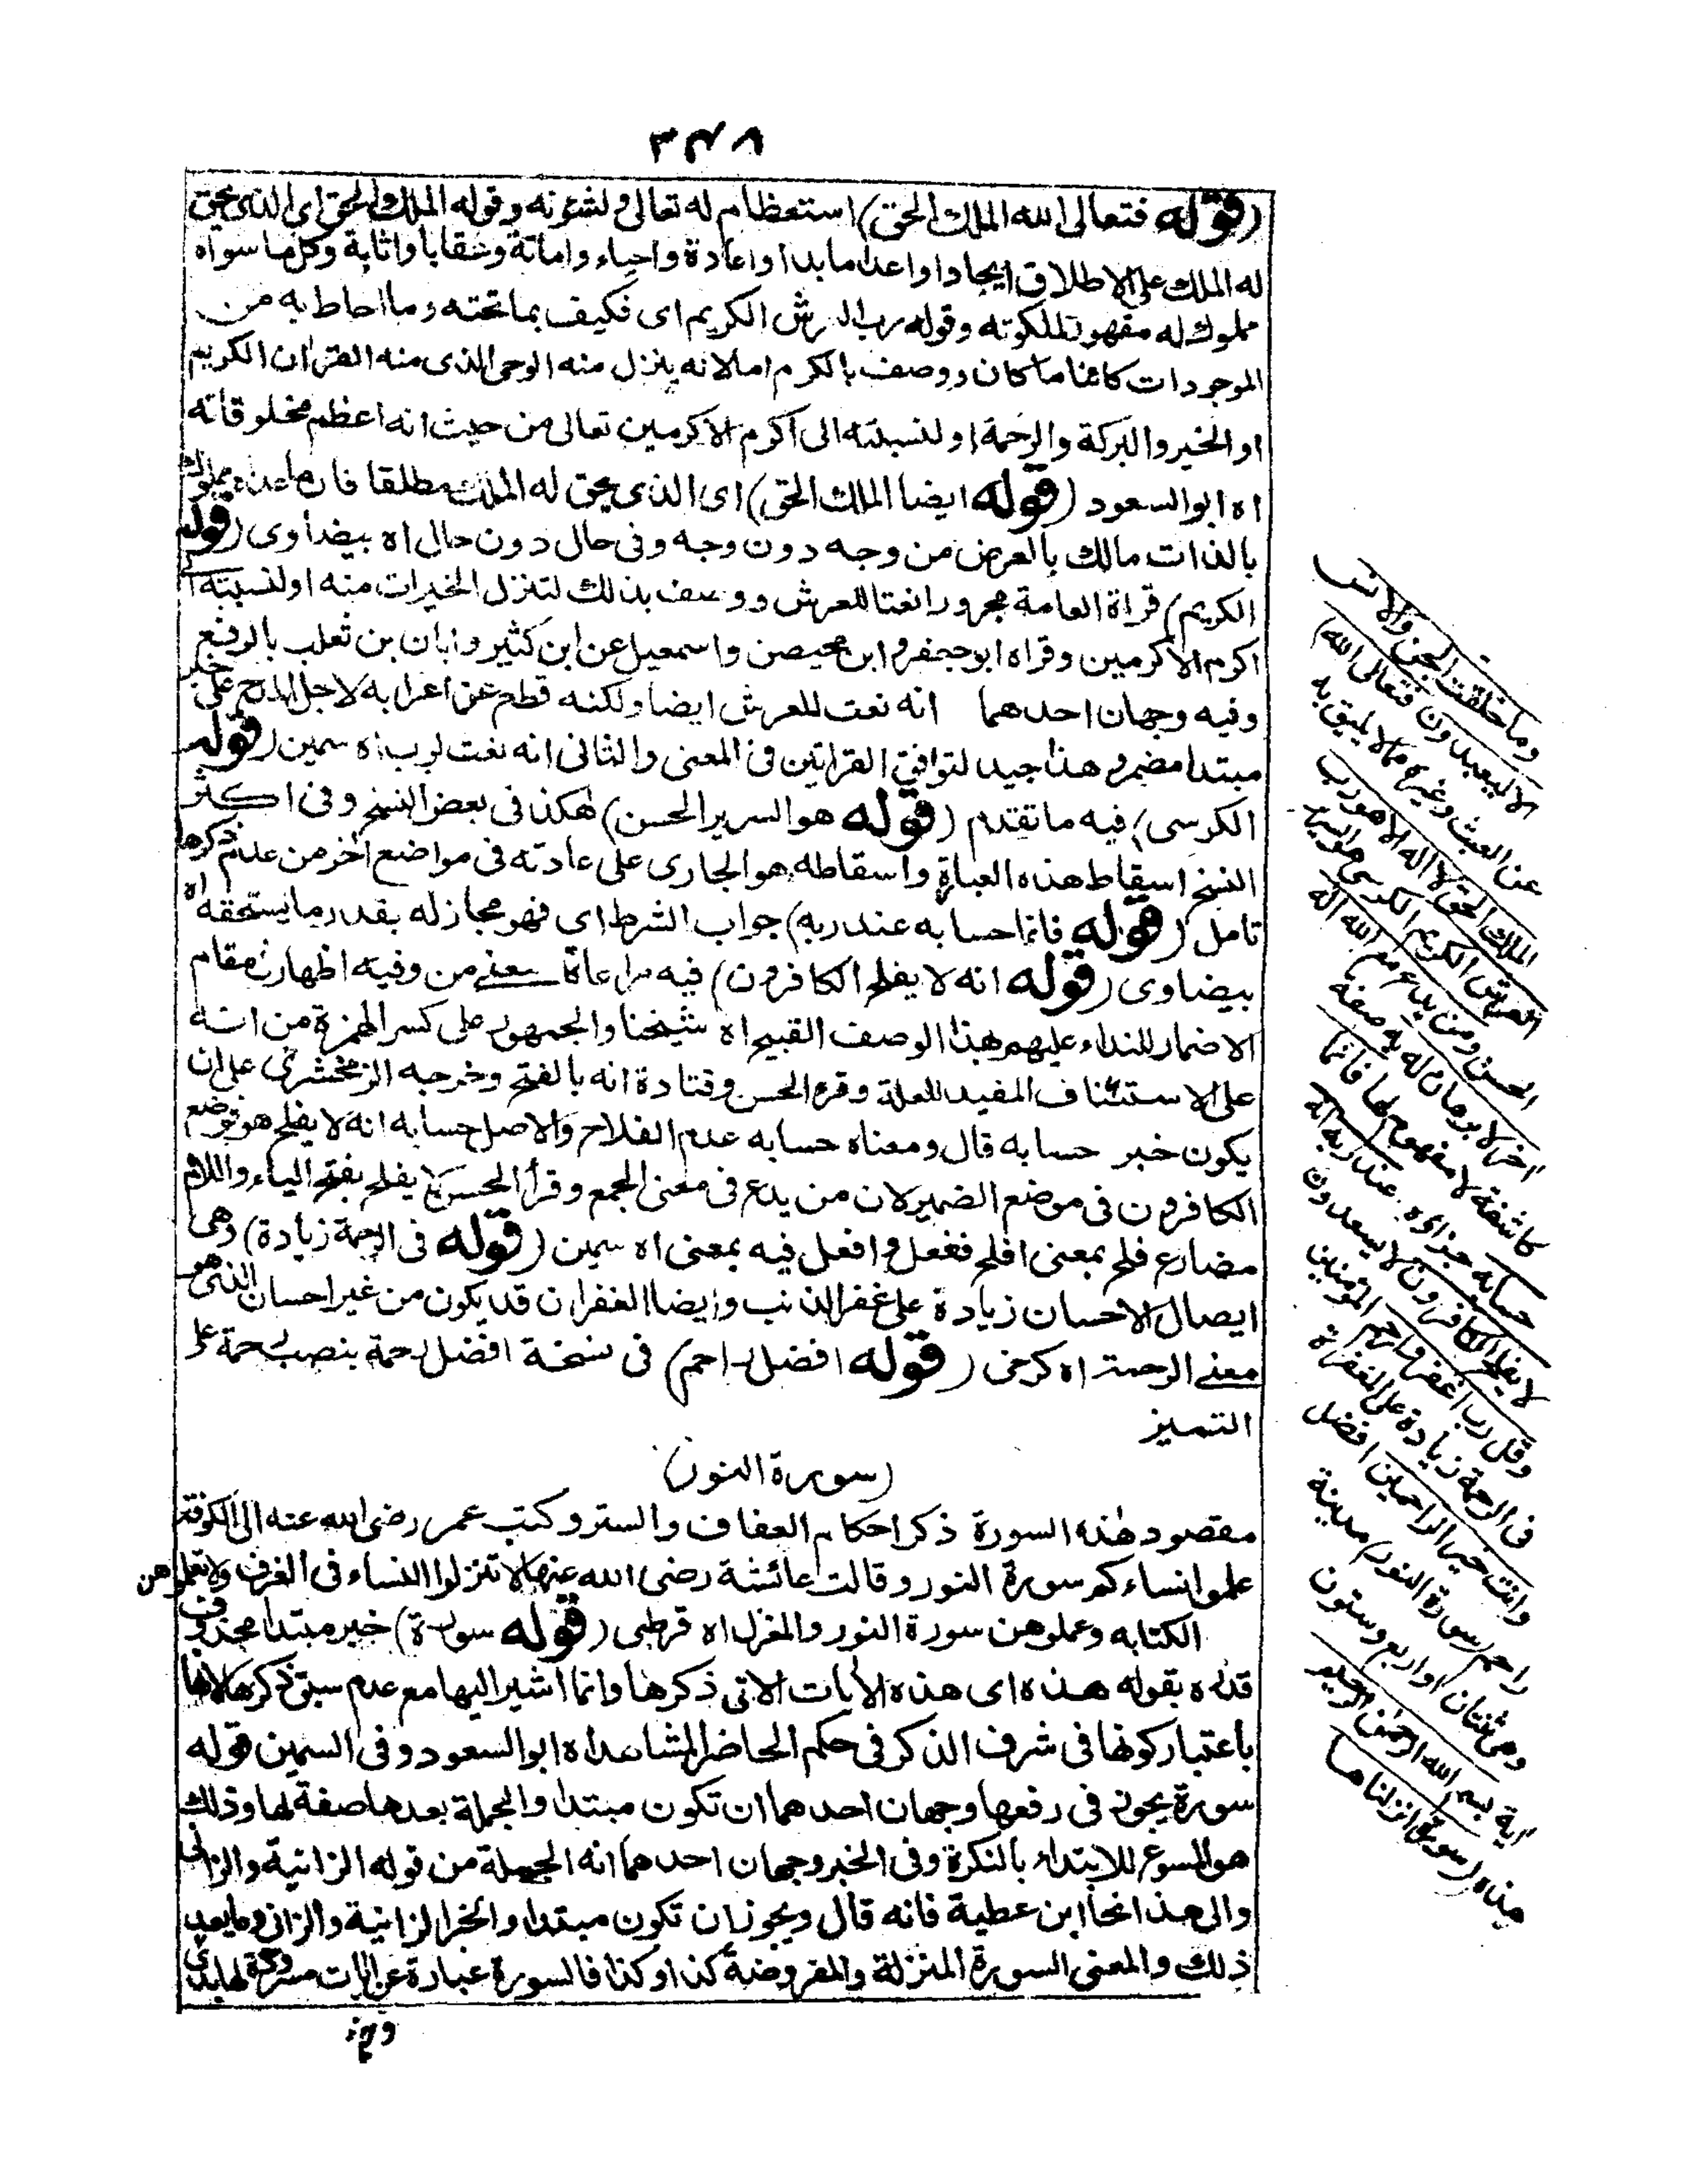 ٣٤٧
(قوله فتعالى الله الملك الحق) استعظام له تعالى ولشئونه وقوله الملك الحق اى الذى يحق
له الملك على الاطلاق ايجادا واعداما بدا واعادة واحياء واماتة وعقابا واثابة وكل ما سواه
مملوك له مقهور لملكوته وقوله رب العرش الكريم اى فكيف بما تحته وما احاط به من
الموجودات كائنا ما كان ووصف بالكرم اما لانه ينزل منه الوحى الذى منه القران الكريم
او الخير والبركة والرحمة او لنسبته الى اكرم الاكرمين تعالى من حيث انه اعظم مخلوقاته
اه ابو السعود (قوله ايضا الملك الحق) اى الذى يحق له الملك مطلقا فان ما عداه مملوك
بالذات مالك بالعرض من وجه دون وجه وفى حال دون حال اه بيضاوى (قوله
الكريم) قراة العامة مجرورا نعتا للعرش ووصف بذلك لتنزل الخيرات منه او لنسبته الى
اكرم الاكرمين وقراه ابو جعفر و ابن محيصن واسمعيل عن ابن كثير وابان بن تغلب بالرفع
وفيه وجهان احدهما انه نعت للعرش ايضا ولكنه قطع عن اعرابه لاجل المدح على خبر
مبتدا مضمر و هذا جيد لتوافق القراتين فى المعنى والثانى انه نعت لرب اه سمين (قوله
الكرسى) فيه ما تقدم (قوله هو السرير الحسن) هكذا فى بعض النسخ وفى اكثر
النسخ اسقاط هذه العبارة واسقاطه هو الجارى على عادته فى مواضع اخر من عدم ذكرها
تامل (قوله فانما حسابه عند ربه) جواب الشرط اى فهو مجاز له بقدر ما يستحقه اه
بيضاوى (قوله انه لا يفلح الكافرون) فيه مراعاة معنى من وفيه اظهار فى مقام
الاضمار للنداء عليهم بهذا الوصف القبيح اه شيخنا والجمهور على كسر الهمزة من انه
على الاستئناف المفيد للعلة وقرء الحسن وقتادة انه بالفتح وخرجه الزمخشرى على ان
يكون خبر حسابه قال ومعناه حسابه عدم الفلاح والاصل حسابه انه لا يفلح هو توضع
الكافرون فى موضع الضمير لان من يدع فى معنى الجمع وقرأ الحسن لا يفلح بفتح الياء واللام
مضارع فلح بمعنى افلح ففعل و افعل فيه بمعنى اه سمين (قوله فى الرحمة زيادة) وهى
ايصال الاحسان زيادة على غفر الذنب وايضا الغفران قد يكون من غير احسان الذى هو
معنى الرحمة اه كرخى (قوله افضل راحم) فى نسخة افضل رحمة بنصب رحمة على
التميز
(سورة النور)
مقصود هذه السورة ذكر احكام العفاف والستر وكتب عمر رضى الله عنه الى الكوفة
علموا نساءكم سورة النور وقالت عائشة رضى الله عنها لا تنزلوا النساء فى الغرف ولا تعلموهن
الكتابه وعلموهن سورة النور والمغزل اه قرطبى (قوله سورة) خبر مبتدا محذوف
قدره بقوله هذه اى هذه الآيات الاتى ذكرها وانما اشير اليها مع عدم سبق ذكرها لانها
باعتبار كونها فى شرف الذكر فى حكم الحاضر المشاهد اه ابو السعود وفى السمين قوله
سورة يجوز فى رفعها وجهان احدهما ان تكون مبتدا والجملة بعدها صفة لها وذلك
هو المسوغ للابتداء بالنكرة وفى الخبر وجهان احدهما انه الجملة من قوله الزانية والزانى
والى هذا نحا ابن عطية فانه قال ويجوز ان تكون مبتدا والخبر الزانية والزانى وما بعد
ذلك والمعنى السورة المنزلة والمفروضة كذا وكذا فالسورة عبارة عن ايات مسرودة لها بدئ
وما خلقت الجن والانس
الا ليعبدون (فتعالى الله)
عن العبث وغيره مما لا يليق به
الملك الحق لا اله الا هو رب
العرش الكريم الكرسى هو السرير
الحسن ومن يدع مع الله الها
اخر لا برهان له به صفة
كاشفة لا مفهوم لها فانما
حسابه جزاؤه عند ربه انه
لا يفلح الكافرون لا يسعدون
وقل رب اغفر وارحم المؤمنين
فى الرحمة زيادة على المغفرة
وانت خير الراحمين افضل
راحم (سورة النور) مدنية
وهى ثنتان او اربع وستون
اية بسم الله الرحمن الرحيم
هذه (سورة انزلناها